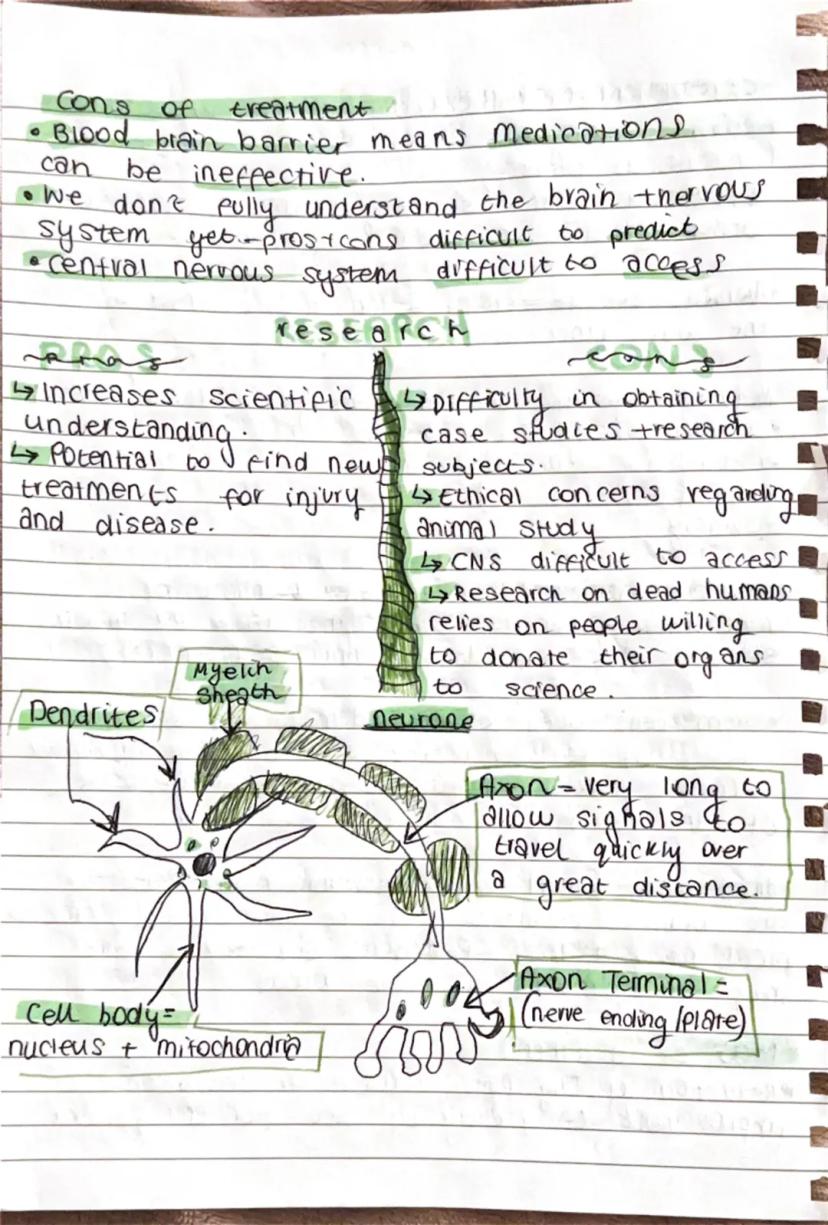 Cons of treatment
• Blood brain barrier means medications
can be ineffective.
• We don't fully understand the brain + nervous
system yet - pros + cons difficult to predict
• Central nervous system difficult to access
research
pros
↳ Increases scientific
understanding.
↳ Potential to find new
treatments for injury
and disease.
cons
↳ Difficulty in obtaining
case studies + research
subjects.
↳ Ethical concerns regarding
animal study
↳ CNS difficult to access
↳ Research on dead humans
relies on people willing
to donate their organs
to science.
neurone
Myelin
Sheath
Dendrites
Axon = very long to
allow signals to
travel quickly over
a great distance.
Axon Terminal =
(nerve ending/plate)
Cell body =
nucleus + mitochondria